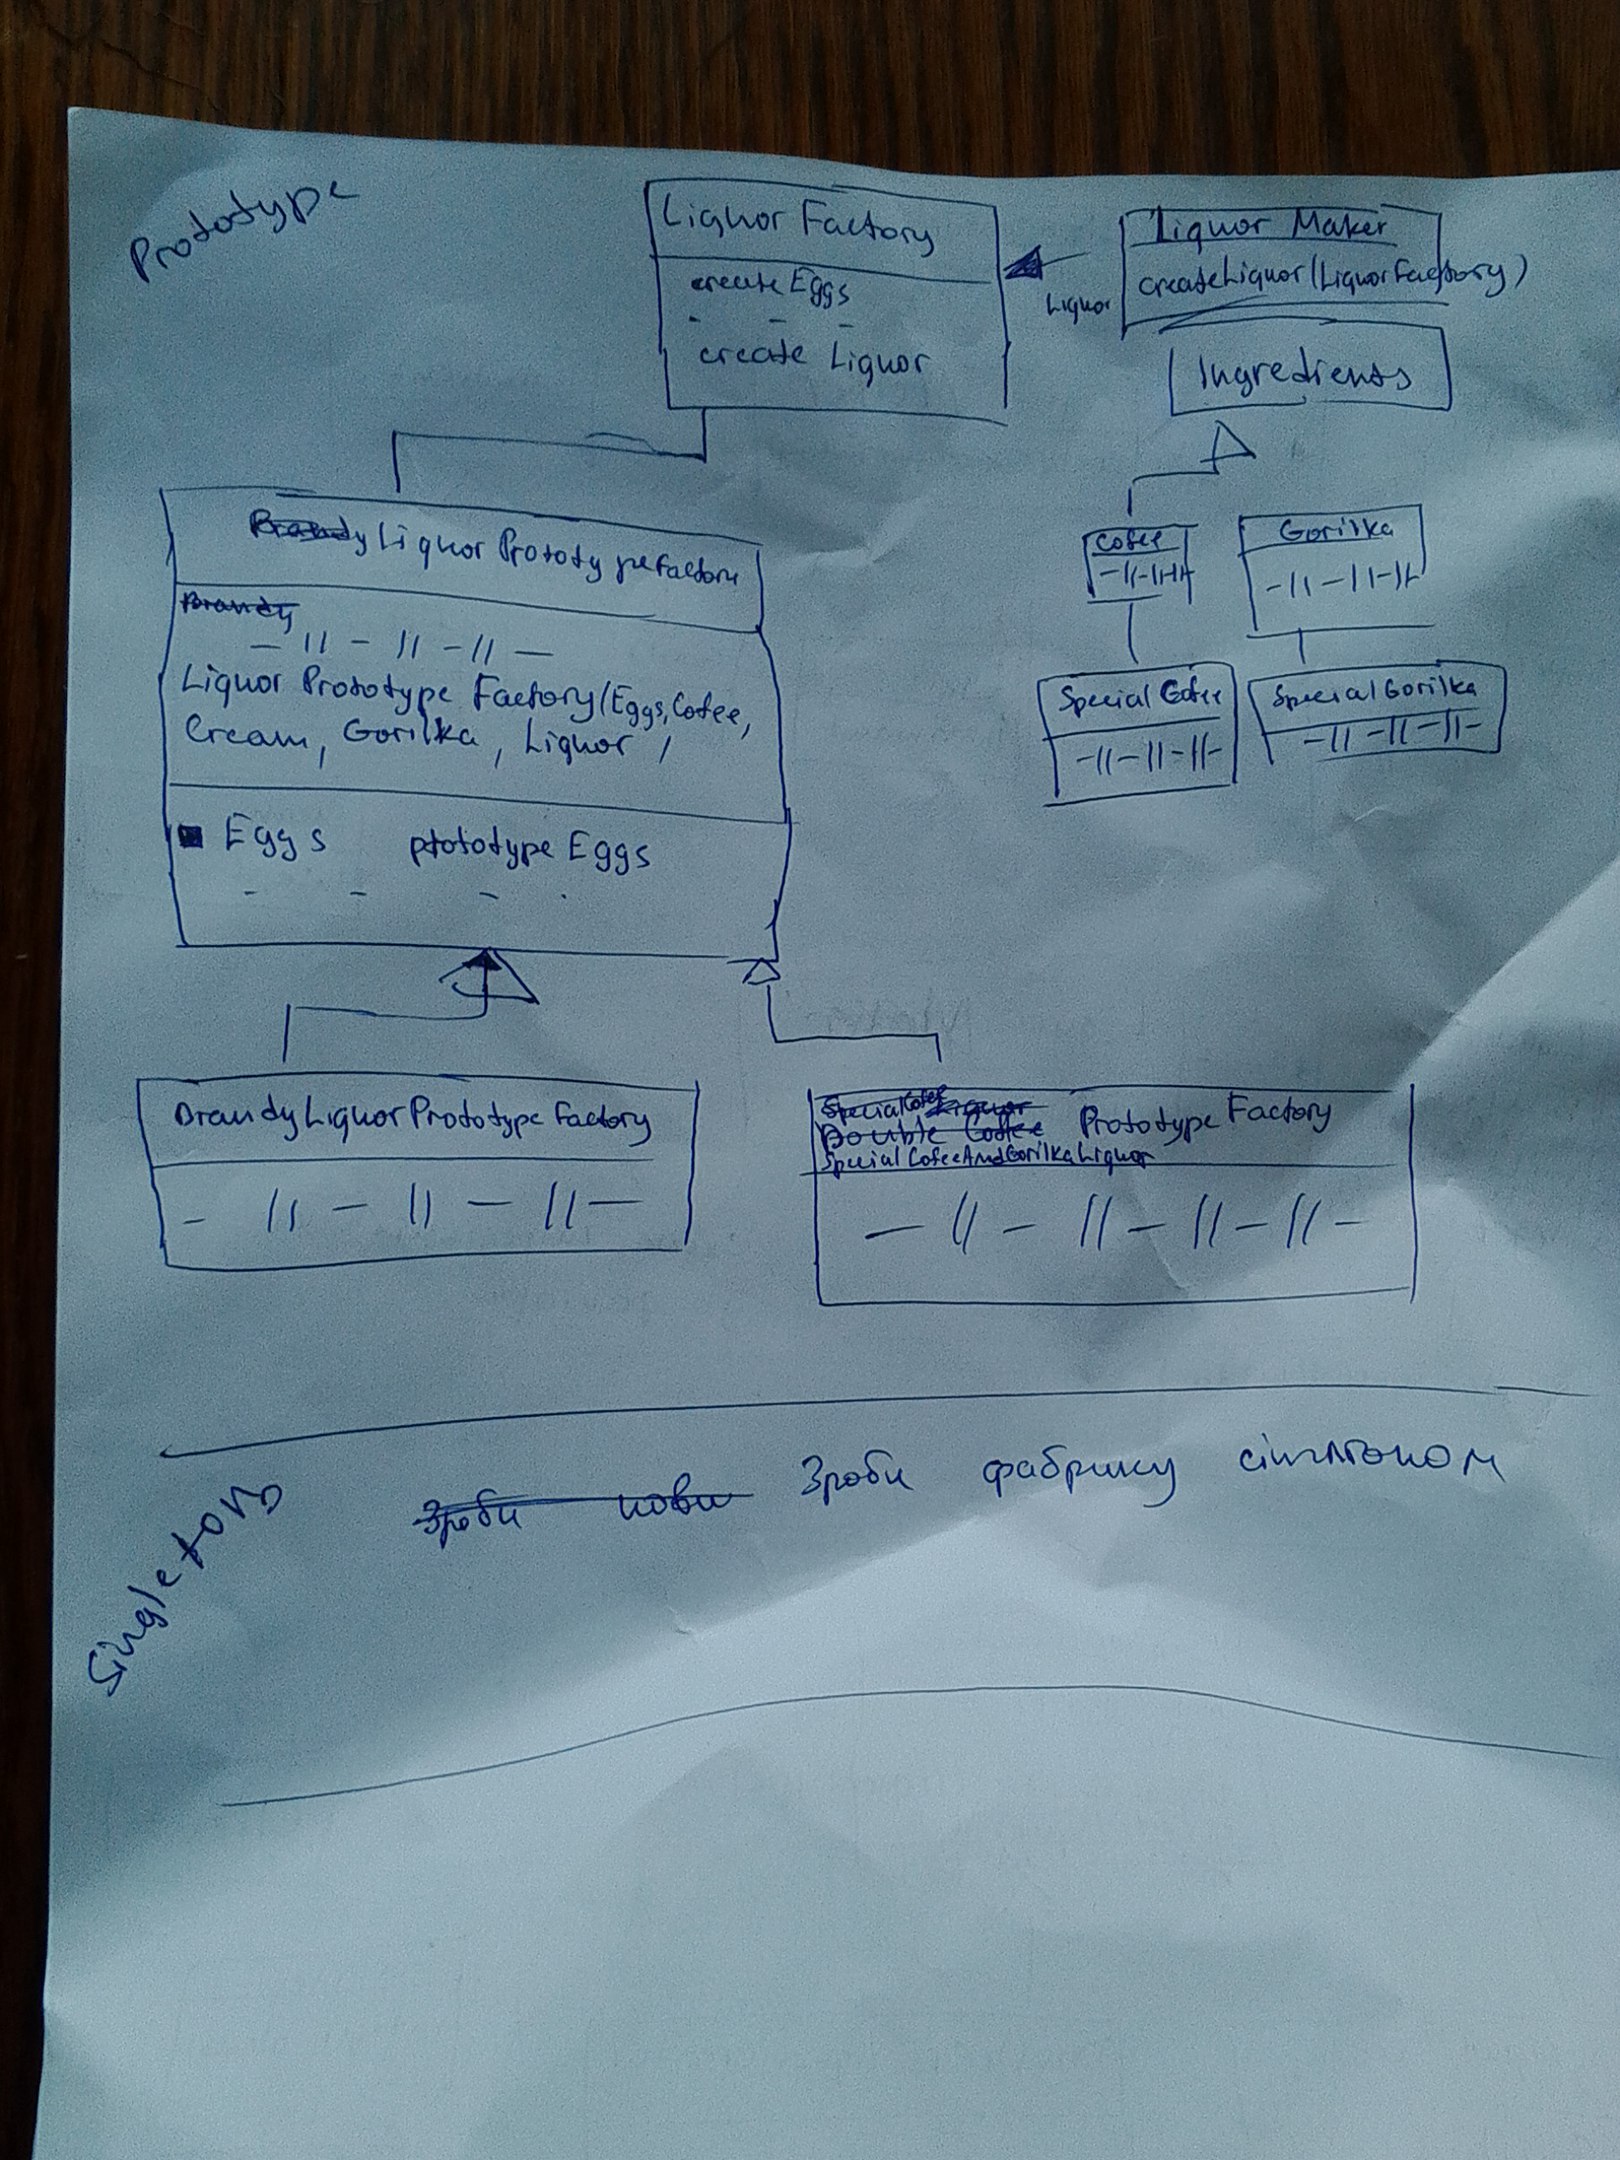 Prototype
Liquor Factory
create Eggs
create Liquor
Liquor Maker
createLiquor(LiquorFactory)
Liquor
Ingredients
Cofee
Gorilka
Special Cofee
SpecialGorilka
Brandy Liquor Prototype Factory
Brandy
Liquor Prototype Factory(Eggs, Cofee,
Cream, Gorilka, Liquor,
Eggs prototype Eggs
BrandyLiquorPrototype Factory
SpecialCofee Liquor
Double Coffee Prototype Factory
Special CofeeAndGorilkaLiquor
Singleton
Зроби нови Зроби фабрику сінглтоном